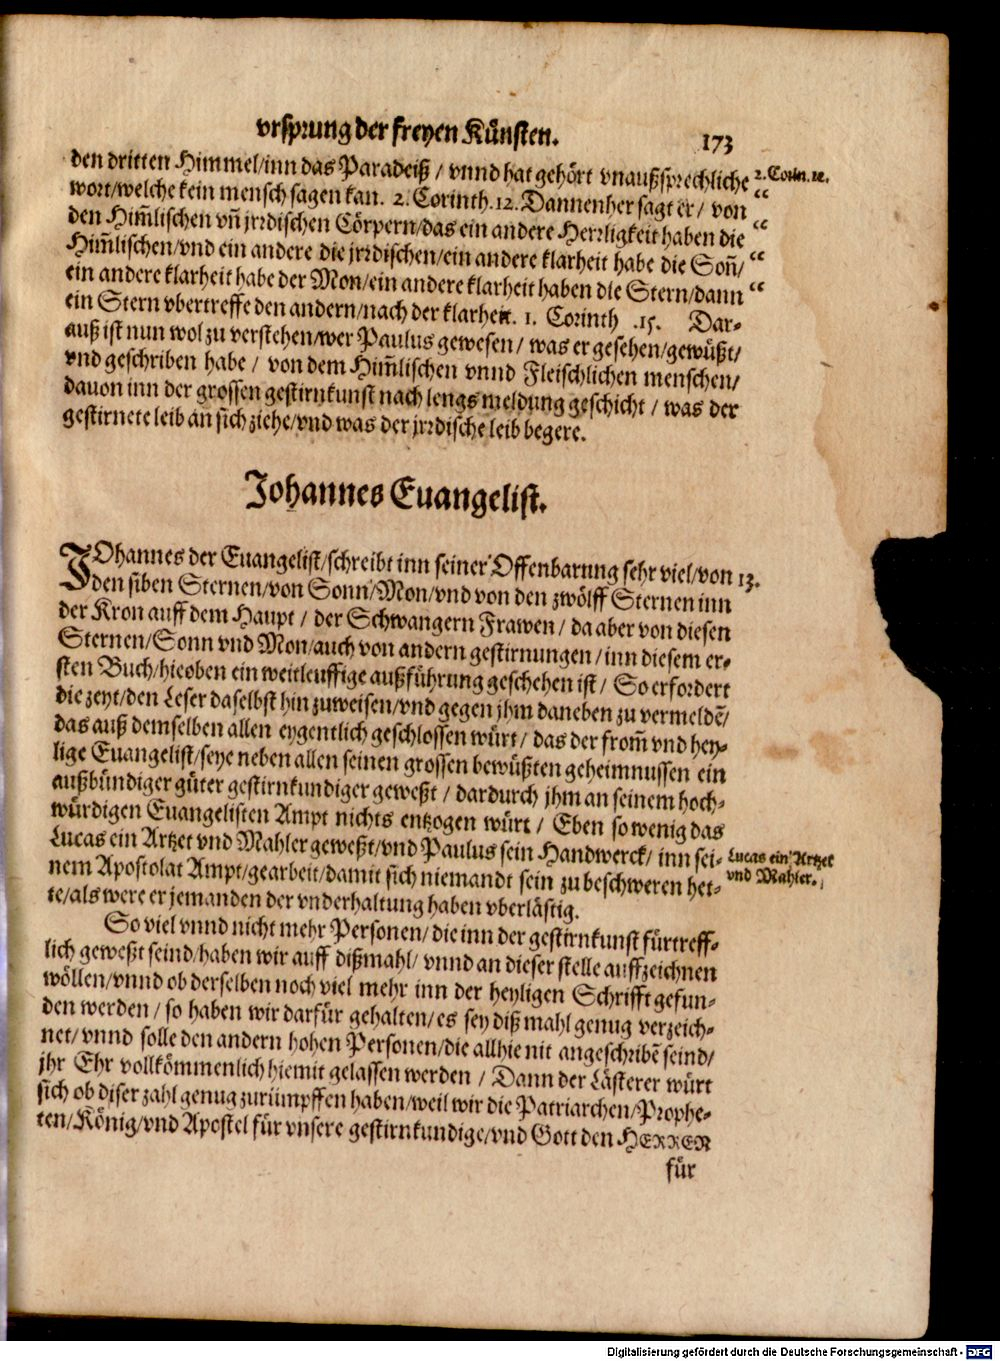 vrsprung der freyen Künsten. 173
den dritten Himmel/inn das Paradeiß / vnnd hat gehört vnaußsprechliche 2. Corin. 12.
wort/welche kein mensch sagen kan. 2. Corinth. 12. Dannenher sagt er / von “
den Him̄lischen vn̄ jrrdischen Cörpern/das ein andere Herrligkeit haben die “
Him̄lischen/vnd ein andere die jrrdischen/ein andere klarheit habe die Son̄/ “
ein andere klarheit habe der Mon/ein andere klarheit haben die Stern/dann “
ein Stern vbertreffe den andern/nach der klarheit. 1. Corinth .15. Dar-
auß ist nun wol zu verstehen/wer Paulus gewesen / was er gesehen/gewüßt/
vnd geschriben habe / von dem Him̄lischen vnnd Fleischlichen menschen/
dauon inn der grossen gestirnkunst nach lengs meldung geschicht / was der
gestirnete leib an sich ziehe/vnd was der jrrdische leib begere.
Johannes Euangelist.
JOhannes der Euangelist/schreibt inn seiner Offenbarung sehr viel/von 13.
den siben Sternen/von Sonn/Mon/vnd von den zwölff Sternen inn
der Kron auff dem Haupt / der Schwangern Frawen / da aber von diesen
Sternen/Sonn vnd Mon/auch von andern gestirnungen / inn diesem er-
sten Buch/hieoben ein weitleuffige außführung geschehen ist / So erfordert
die zeyt/den Leser daselbst hin zuweisen/vnd gegen jhm daneben zu vermeldē/
das auß demselben allen eygentlich geschlossen würt / das der from̄ vnd hey-
lige Euangelist/seye neben allen seinen grossen bewüßten geheimnussen ein
außbündiger güter gestirnkundiger geweßt / dardurch jhm an seinem hoch-
würdigen Euangelisten Ampt nichts entzogen würt / Eben so wenig das
Lucas ein Artzet vnd Mahler geweßt/vnd Paulus sein Handwerck/ inn sei-
nem Apostolat Ampt/gearbeit/damit sich niemandt sein zu beschweren het-
te/als were er jemanden der vnderhaltung haben vberlästig.
Lucas ein Artzet
vnd Mahler.
So viel vnnd nicht mehr Personen/ die inn der gestirnkunst fürtreff-
lich geweßt seind/haben wir auff dißmahl/ vnnd an dieser stelle auffzeichnen
wöllen/vnnd ob derselben noch viel mehr inn der heyligen Schrifft gefun-
den werden / so haben wir darfür gehalten/es sey diß mahl genug verzeich-
net/vnnd solle den andern hohen Personen/die allhie nit angeschribē seind/
jhr Ehr vollkömmenlich hiemit gelassen werden / Dann der Lästerer würt
sich ob diser zahl genug zurümpffen haben/weil wir die Patriarchen/Prophe-
ten/König/vnd Apostel für vnsere gestirnkundige/vnd Gott den HERREN
für
Digitalisierung gefördert durch die Deutsche Forschungsgemeinschaft - DFG